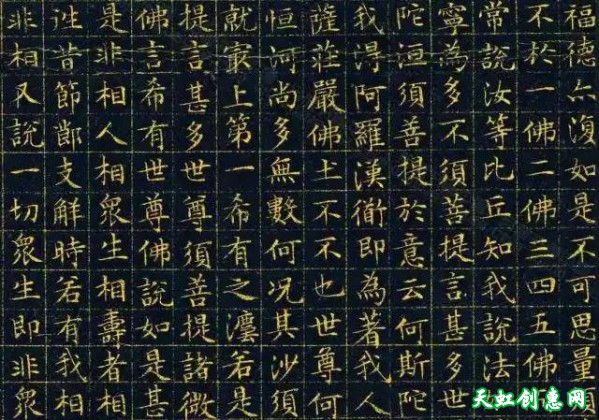 福德亦復如是不可思量須
不於一佛二佛三四五佛而
常說汝等比丘知我說法
寧為多不須菩提言甚多世
陀洹須菩提於意云何斯陀
我淂阿羅漢衜即為著我人
薩莊嚴佛土不不也世尊何
恒河尚多無數何況其沙須
就冣上第一希有之灋若是
提言甚多世尊須菩提諸微
佛言希有世尊佛說如是甚
是非相人相眾生相壽者相
往昔節節支解時若有我相
非相又說一切眾生即非眾
天虹创意网